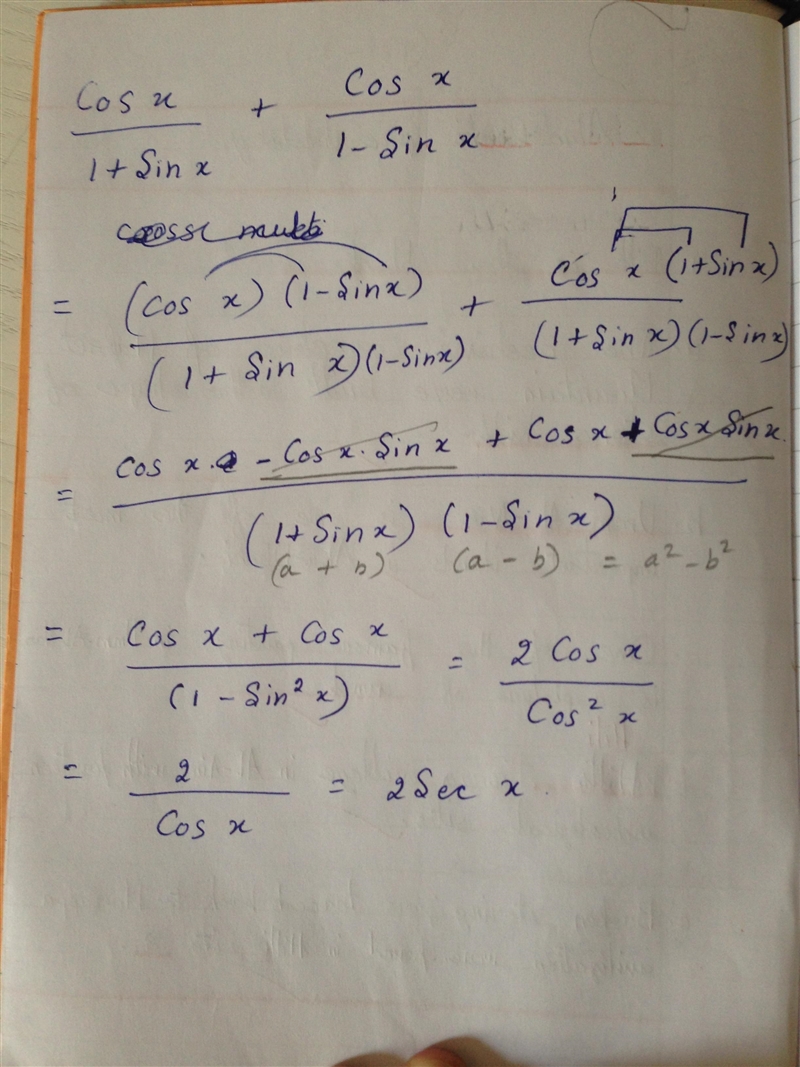 Cos x / 1 + Sin x + Cos x / 1 - Sin x
= (Cos x) (1 - Sin x) / (1 + Sin x)(1 - Sin x) + Cos x (1 + Sin x) / (1 + Sin x)(1 - Sin x)
= Cos x - Cos x · Sin x + Cos x + Cos x Sin x / (1 + Sin x) (1 - Sin x)
(a + b) (a - b) = a² - b²
= Cos x + Cos x / (1 - Sin² x) = 2 Cos x / Cos² x
= 2 / Cos x = 2 Sec x